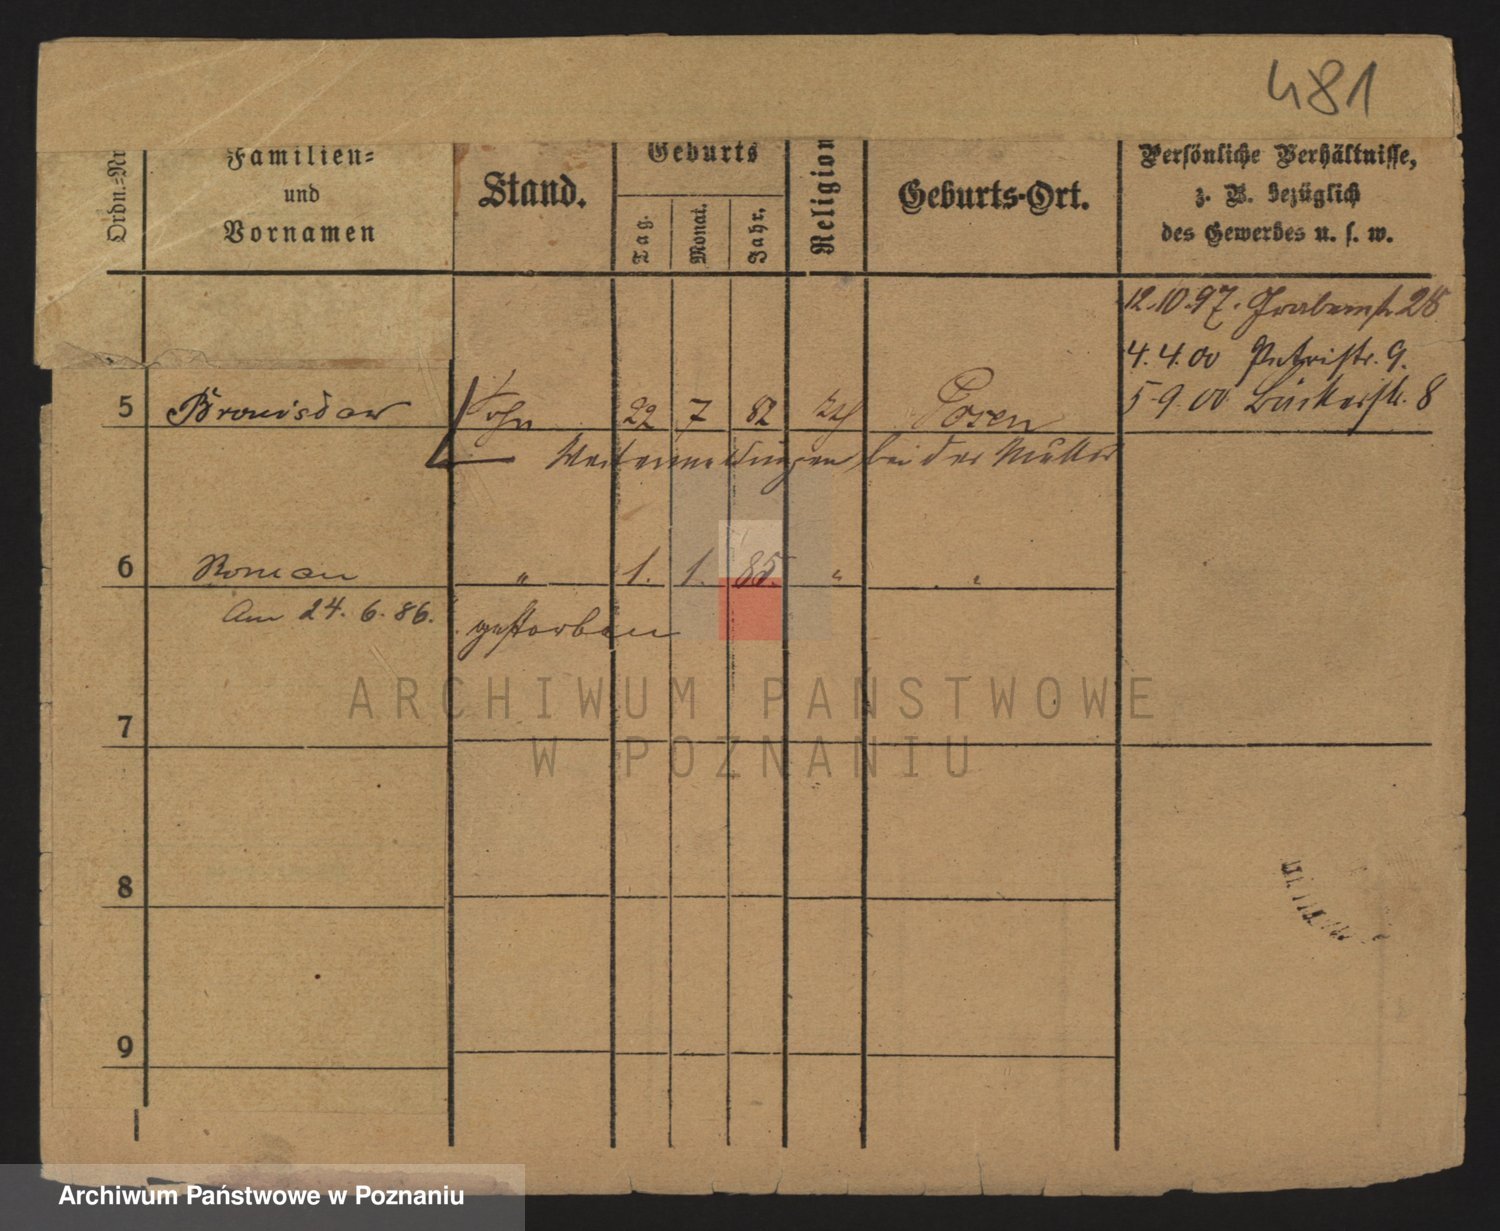 481
Ordn.-Nr
Familien-
und
Vornamen
Stand.
Geburts
Tag.
Monat.
Jahr.
Religion
Geburts-Ort.
Persönliche Verhältnisse,
z. B. bezüglich
des Gewerbes u. s. w.
12.10.97. Grabenstr. 28
4.4.00 Petristr. 9.
5.9.00 Bäckerstr. 8
5 Bronisdaw Sohn 22 7 82 kth Posen
Weitermeldungen bei der Mutter
6 Roman " 1. 1. 85. " "
Am 24.6.86. gestorben
7
8
9
ARCHIWUM PAŃSTWOWE
W POZNANIU
Archiwum Państwowe w Poznaniu